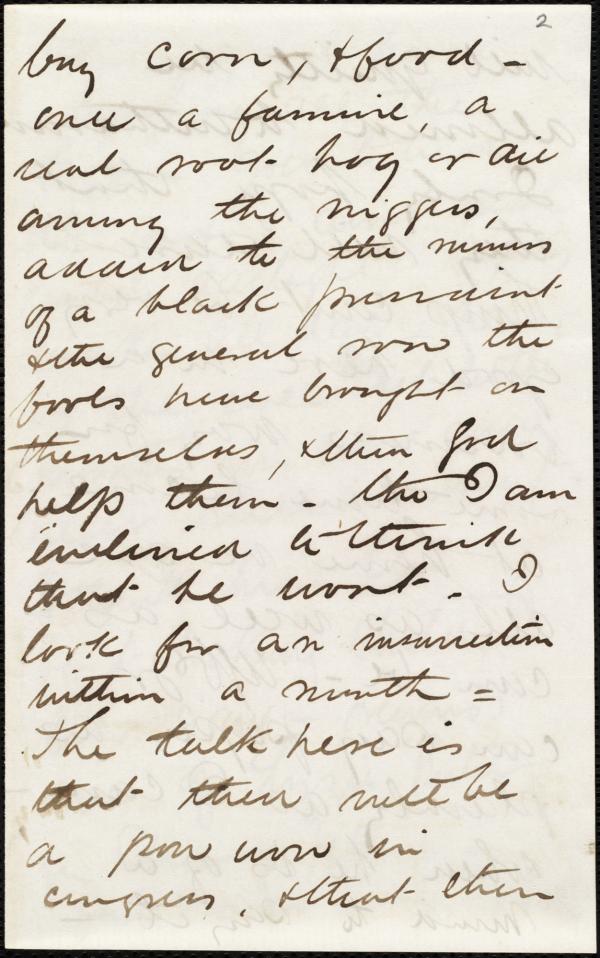 2
buy corn, & food -
once a famine, a
real root hog or die
among the niggers,
added to the rumors
of a black president
& the general row the
fools have brought on
themselves, & then God
help them - tho I am
inclined to think
that he wont - I
look for an insurrection
within a month =
The talk here is
that there will be
a pow wow in
congress, & that then